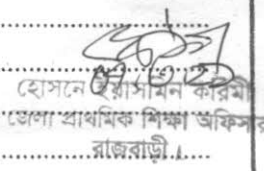 হোসনে ইয়াসমিন করিমী
জেলা প্রাথমিক শিক্ষা অফিসার
রাজবাড়ী।